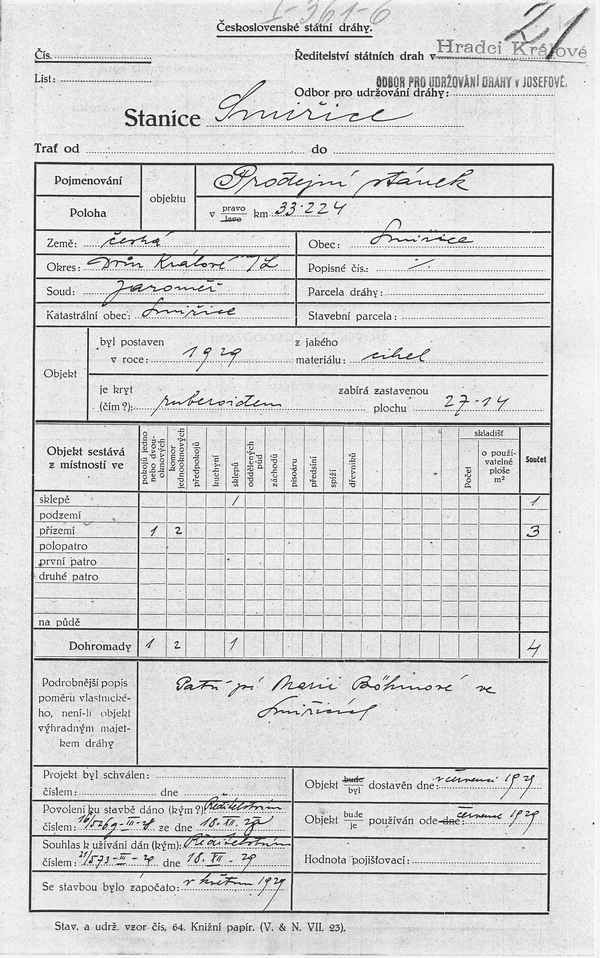 I-361-6
Československé státní dráhy.
21
Čís.
Ředitelství státních drah v Hradci Králové
List:
ODBOR PRO UDRŽOVÁNÍ DRAHY v JOSEFOVĚ.
Odbor pro udržování dráhy:
Stanice Smiřice
Trať od do
Pojmenování objektu Prodejní stánek
Poloha v pravo levo km 33·224
Země: česká Obec: Smiřice
Okres: Dvůr Králové n/L Popisné čís.: ./.
Soud: Jaroměř Parcela dráhy:
Katastrální obec: Smiřice Stavební parcela:
Objekt
byl postaven v roce: 1929 z jakého materiálu: cihel
je kryt (čím?): ruberoidem zabírá zastavenou plochu 27·14
Objekt sestává z místností ve
pokojů jedno nebo dvou- oknových
komor jednooknových
předpokojů
kuchyní
sklepů
oddělených půd
záchodů
pisoáru
předsíní
spíží
dřevníků
skladišť
Počet
o použí- vatelné ploše m²
Součet
sklepě 1 1
podzemí
přízemí 1 2 3
polopatro
první patro
druhé patro
na půdě
Dohromady 1 2 1 4
Podrobnější popis
poměru vlastnické-
ho, není-li objekt
výhradným majet-
kem dráhy
Patří pí Marii Böhmové ve
Smiřicích
Projekt byl schválen:
číslem: dne
Objekt bude byl dostavěn dne: v červenci 1929
Povolení ku stavbě dáno (kým?) Ředitelstvím
číslem: ze dne 18. XII.
Objekt bude je používán ode dne: července 1929
Souhlas k užívání dán (kým): Ředitelstvím
číslem: dne 18. XII - 29
Hodnota pojišťovací:
Se stavbou bylo započato: v květnu 1929
Stav. a udrž. vzor čís. 64. Knižní papír. (V. & N. VII. 23).